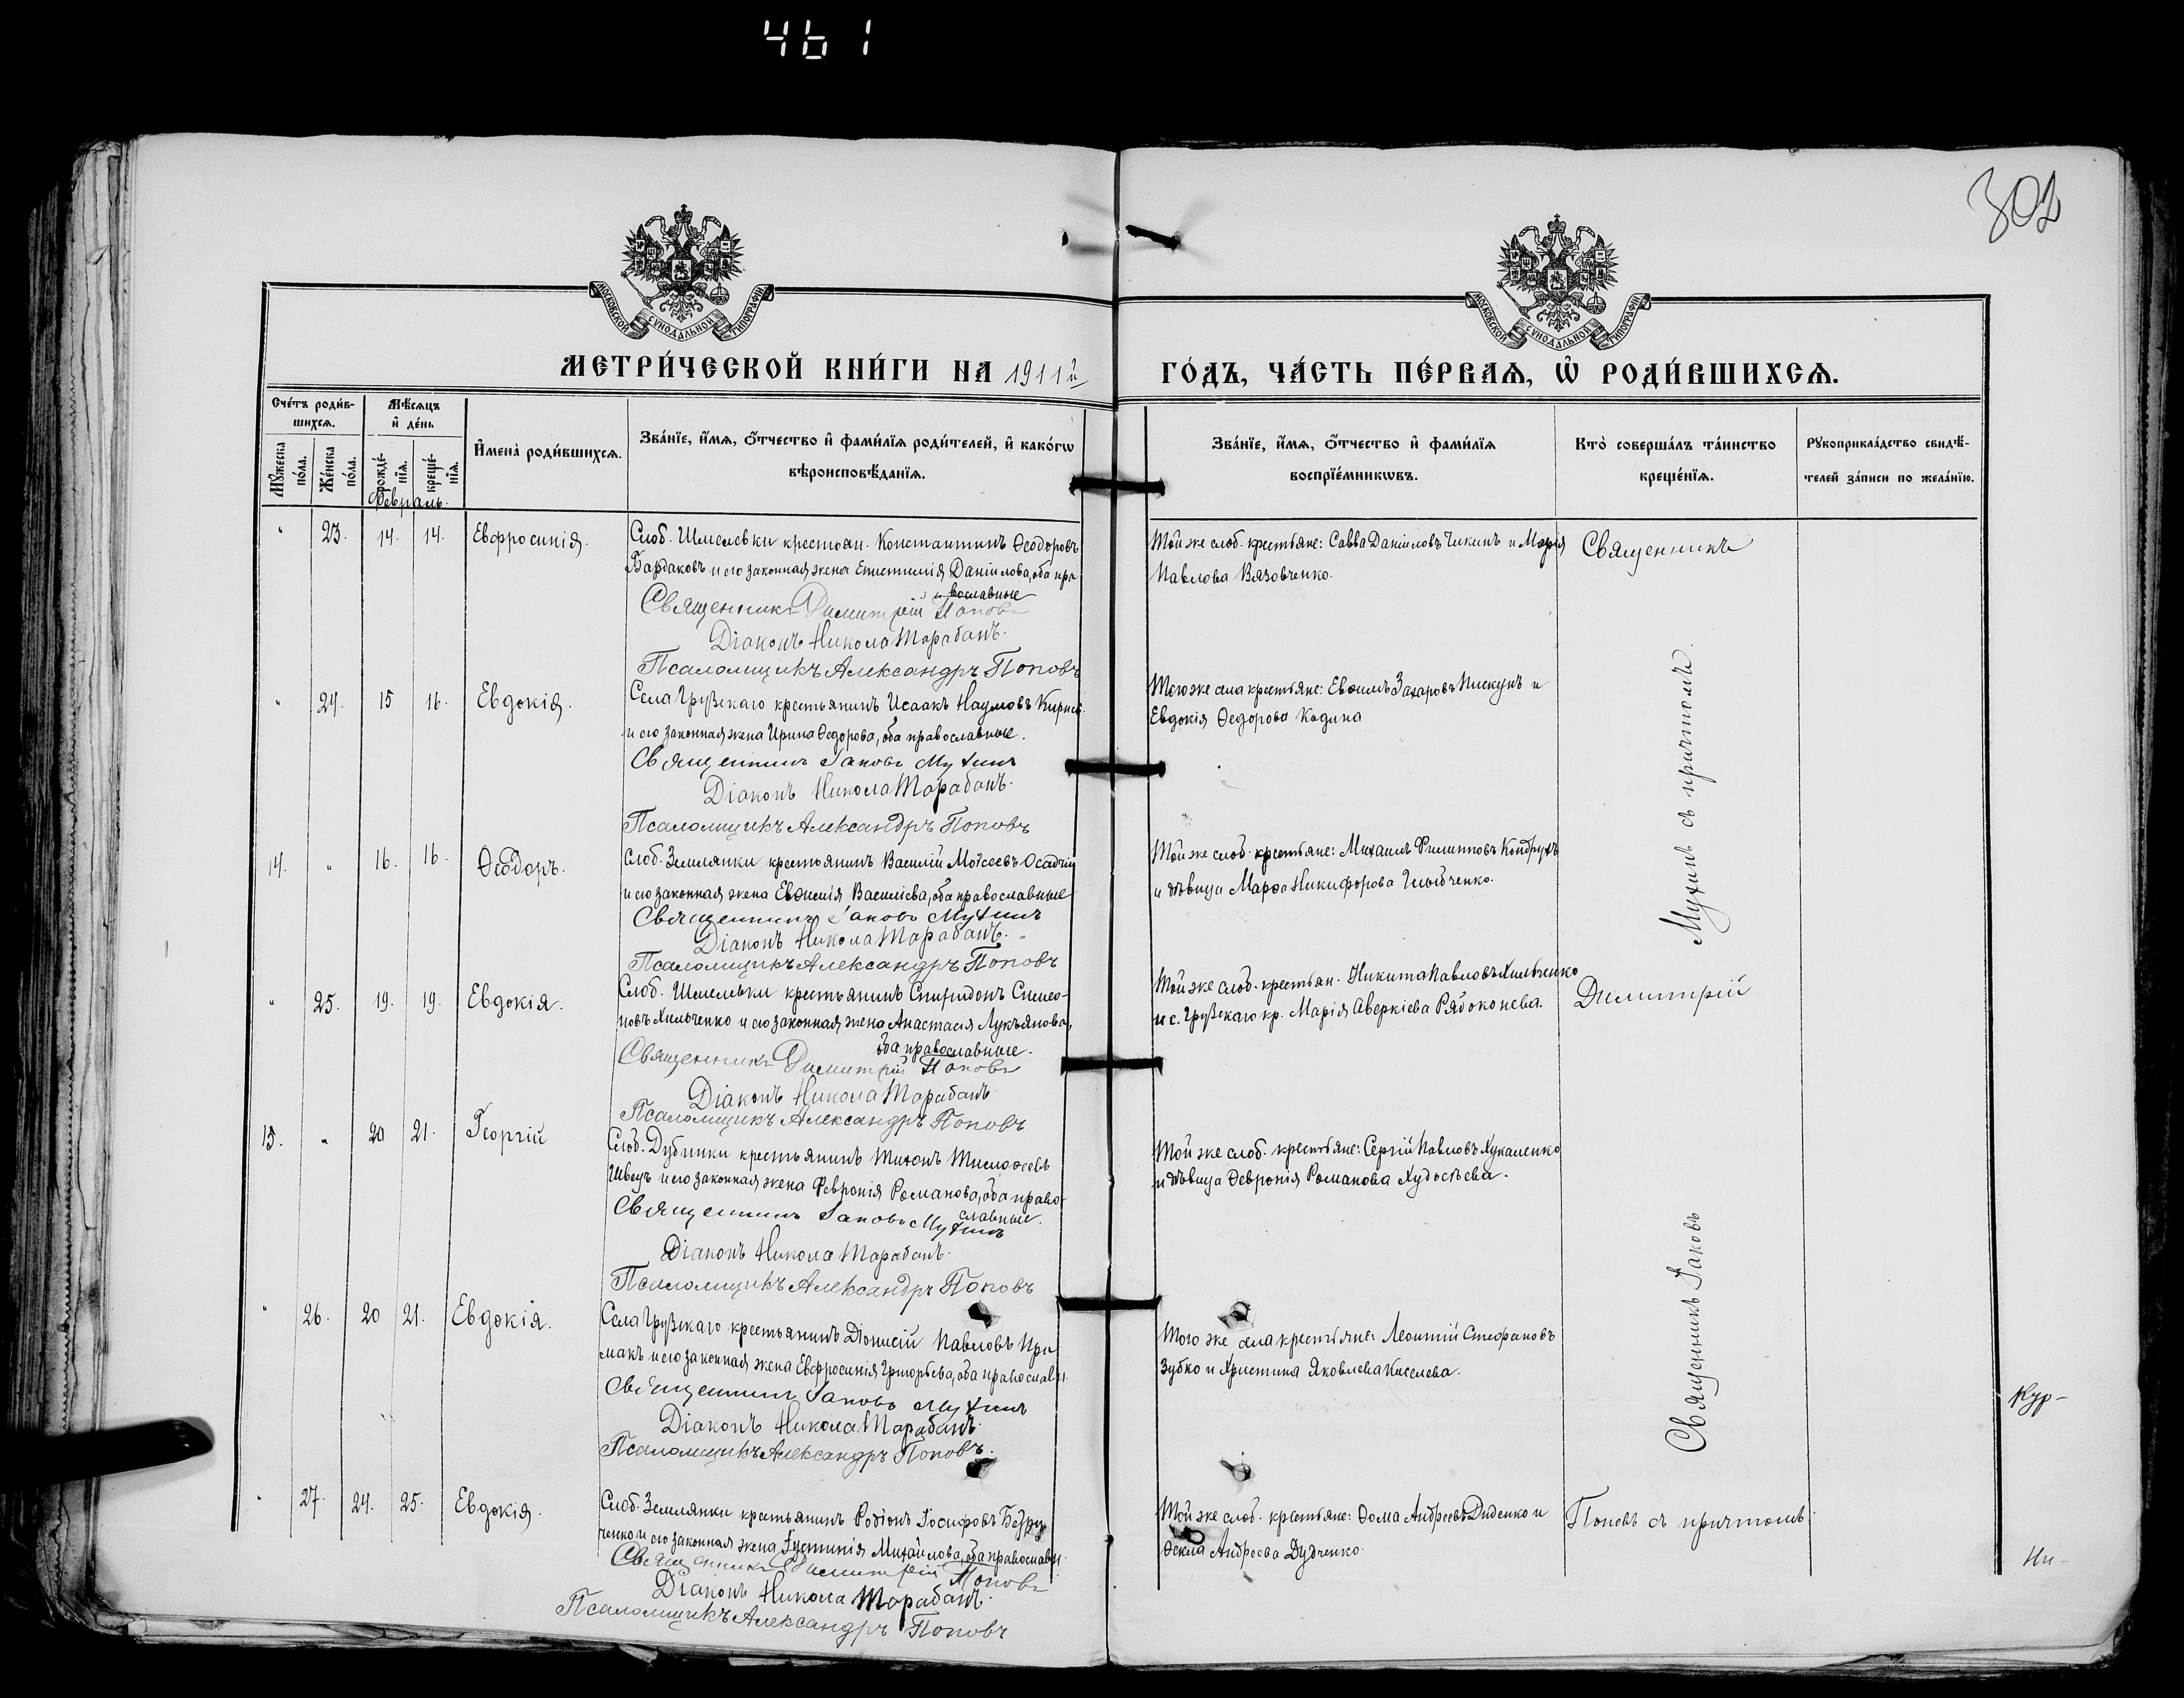 461
302
МОСКОВСКОЙ СѴНОДАЛЬНОЙ ТИПОГРАФІИ
МОСКОВСКОЙ СѴНОДАЛЬНОЙ ТИПОГРАФІИ
МЕТРИ́ЧЕСКОЙ КНИ́ГИ НА 1911й
ГО́ДЪ, ЧА́СТЬ ПЕ́РВАЯ, Ѽ РОДИ́ВШИХСЯ.
Сче́тъ роди́в-
шихся.
Мѣ́сяцъ
и де́нь
Му́жеска по́ла.
Же́нска по́ла.
рожде́-
нїя.
креще́-
нїя.
Имена̀ роди́вшихся.
Зва́нїе, и́мя, ѻ́тчество и фами́лїя роди́телей, и како́гѡ
вѣроисповѣ́данїя.
Зва́нїе, и́мя, ѻ́тчество и фами́лїя
воспрїе́мникѡвъ.
Кто̀ соверша́лъ та́инство
креще́нїя.
Рукоприкла́дство свидѣ́-
телей за́писи по жела́нїю.
Февраль.
" 23. 14. 14. Евфросинія.
Слоб. Шмелевки крестьян. Константинъ Ѳеодоровъ
Бардаковъ и его законная жена Епистимія Даніилова, оба пра-
вославные
Священникъ Димитрій Поповъ
Діаконъ Никола Тарабанъ.
Псаломщикъ Александръ Поповъ
Той же слоб. крестьяне: Савва Даніиловъ Чикинъ и Марія
Павлова Вязовченко.
Священникъ
" 24. 15 16. Евдокія.
Села Грузскаго крестьянинъ Исаакъ Наумовъ
и его законная жена Ирина Ѳедорова, оба православные.
Священникъ Іаковъ Мухинъ
Діаконъ Никола Тарабанъ.
Псаломщикъ Александръ Поповъ
Того же села крестьяне: Евѳимъ Захаровъ Пискунъ и
Евдокія Ѳедорова Кодина
Мухинъ съ причтомъ.
14. " 16. 16. Ѳеодоръ.
Слоб. Землянки крестьянинъ Василій Моѵсеевъ Осадчій
и его законная жена Евѳимія Василіева, оба православные
Священникъ Іаковъ Мухинъ
Діаконъ Никола Тарабанъ.
Псаломщикъ Александръ Поповъ
Той же слоб. крестьяне: Михаилъ Филипповъ Кондрухъ
и дѣвица Марѳа Никифорова
" 25. 19. 19. Евдокія.
Слоб. Шмелевки крестьянинъ Спиридонъ Симео-
новъ Хильченко и его законная жена Анастасія Лукьянова,
оба православные.
Священникъ Димитрій Поповъ
Діаконъ Никола Тарабанъ
Псаломщикъ Александръ Поповъ
Той же слоб. крестьян. Никита Павловъ Хильченко
и с. Грузскаго кр. Марія Аверкіева Рябоконева.
Димитрій
15. " 20 21. Георгій
Слоб. Дубинки крестьянинъ Тихонъ Тимоѳеевъ
Швецъ и его законная жена Ѳевронія Романова, оба право-
славные.
Священникъ Іаковъ Мухинъ
Діаконъ Никола Тарабанъ.
Псаломщикъ Александръ Поповъ
Той же слоб. крестьяне: Сергій Павловъ Хукаленко
и дѣвица Ѳевронія Романова Худосѣева.
" 26. 20 21. Евдокія.
Села Грузскаго крестьянинъ Діонисій Павловъ При-
макъ и его законная жена Евфросинія Григорьева, оба православн.
Священникъ Іаковъ Мухинъ
Діаконъ Никола Тарабанъ.
Псаломщикъ Александръ Поповъ.
Того же села крестьяне: Леонтій Стефановъ
Зубко и Христина Яковлева Киселева.
Священникъ Іаковъ
Кур-
" 27. 24. 25. Евдокія.
Слоб. Землянки крестьянинъ Родіонъ Іосифовъ Безру-
ченко и его законная жена Іустинія Михайлова, оба православн.
Священникъ Димитрій Поповъ
Діаконъ Никола Тарабанъ.
Псаломщикъ Александръ Поповъ
Той же слоб. крестьяне: Ѳома Андреевъ Диденко и
Ѳекла Андреева Дудченко.
Поповъ съ причтомъ.
Ни-